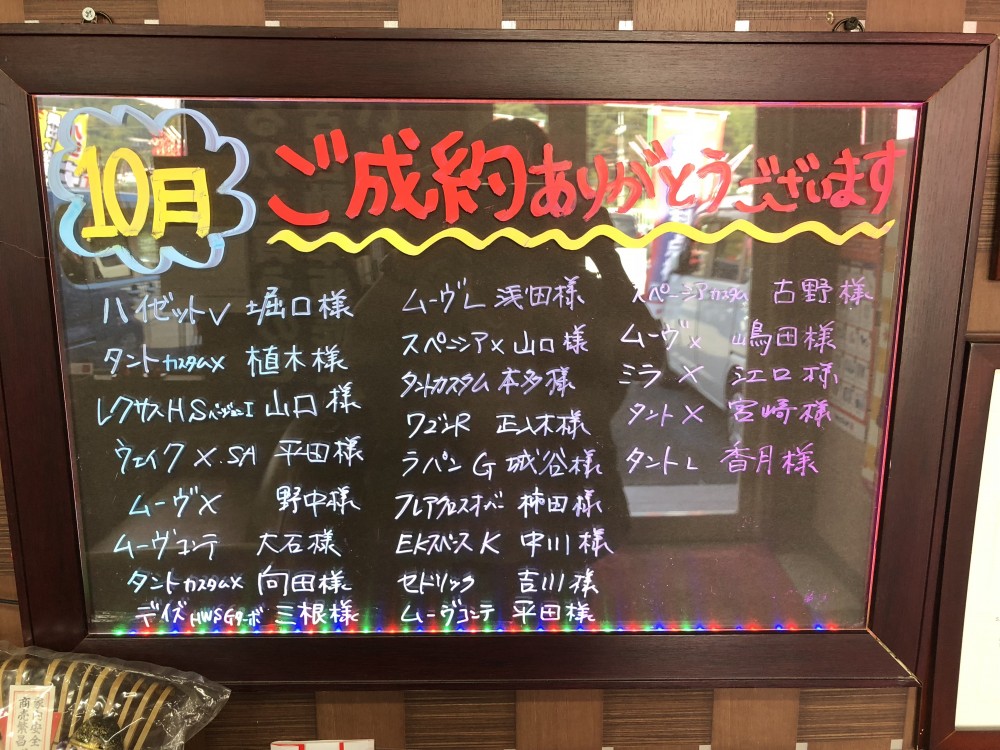 10月
ご成約ありがとうございます
ハイゼットV 堀口様
タントカスタムX 植木様
レクサスHSバージョンI 山口様
ウェイク X.SA 平田様
ムーヴX 野中様
ムーヴコンテ 大石様
タントカスタムX 向田様
デイズHWSGターボ 三根様
ムーヴL 浅田様
スペーシアX 山口様
タントカスタム 本多様
ワゴンR 正八木様
ラパン G 城谷様
フレアクロスオーバー 柿田様
EKスペース K 中川様
セドリック 吉川様
ムーヴコンテ 平田様
スペーシアカスタム 古野様
ムーヴX 嶋田様
ミラ X 江口様
タントX 宮崎様
タントL 香月様
家内安全
商売繁昌